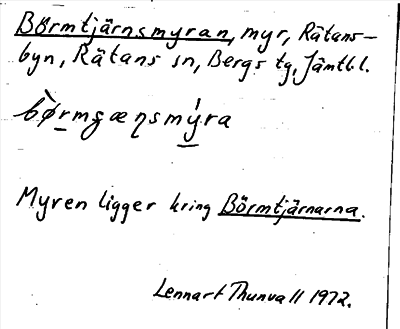 Börmtjärnsmyran, myr, Rätans-
byn, Rätans sn, Bergs tg, Jämtl l.
Myren ligger kring Börmtjärnarna.
Lennart Thunvall 1972.